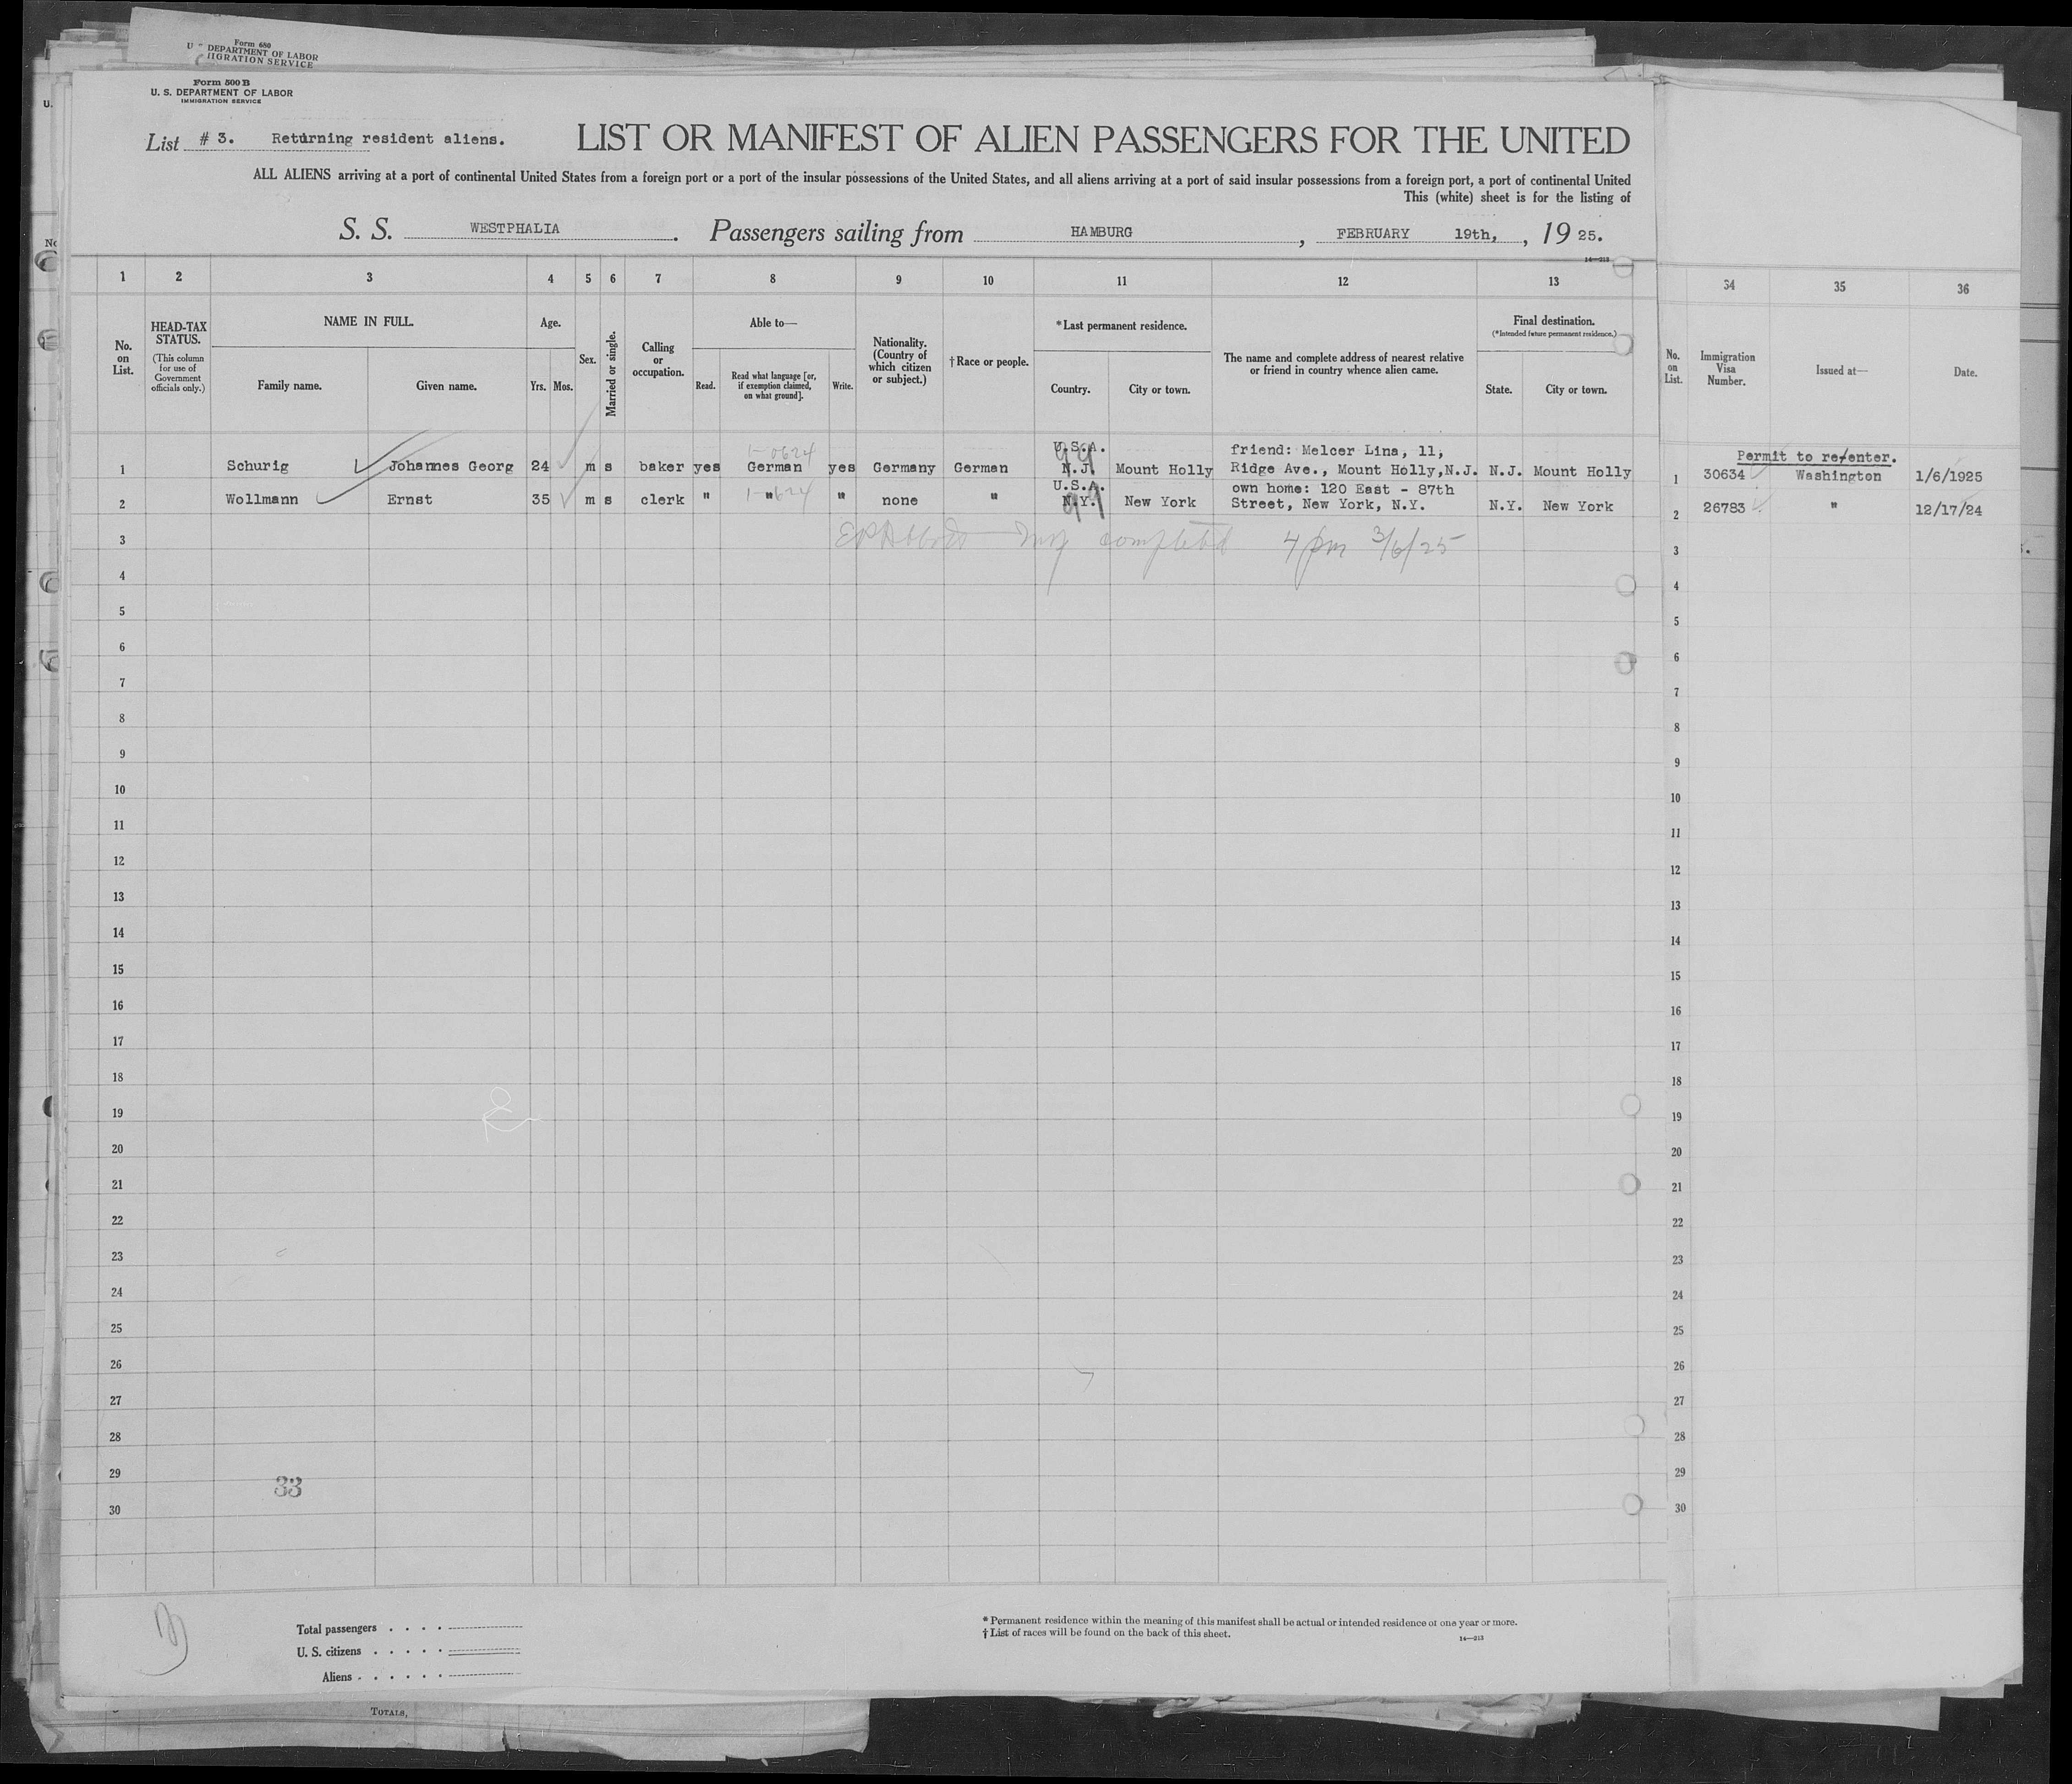 Form 680
DEPARTMENT OF LABOR
IMMIGRATION SERVICE
Form 500 B
U. S. DEPARTMENT OF LABOR
IMMIGRATION SERVICE
List # 3. Returning resident aliens.
LIST OR MANIFEST OF ALIEN PASSENGERS FOR THE UNITED
ALL ALIENS arriving at a port of continental United States from a foreign port or a port of the insular possessions of the United States, and all aliens arriving at a port of said insular possessions from a foreign port, a port of continental United
This (white) sheet is for the listing of
S. S. WESTPHALIA. Passengers sailing from HAMBURG, FEBRUARY 19th,, 19 25.
14—213
1 2 3 4 5 6 7 8 9 10 11 12 13 34 35 36
No. on List.
HEAD-TAX STATUS.
(This column for use of Government officials only.)
NAME IN FULL.
Family name. Given name.
Age.
Yrs. Mos.
Sex.
Married or single.
Calling or occupation.
Able to—
Read. Read what language [or, if exemption claimed, on what ground]. Write.
Nationality. (Country of which citizen or subject.)
†Race or people.
*Last permanent residence.
Country. City or town.
The name and complete address of nearest relative or friend in country whence alien came.
Final destination.
(*Intended future permanent residence.)
State. City or town.
No. on List.
Immigration Visa Number.
Issued at—
Date.
U.S.A. friend: Melcer Lina, 11, Permit to re/enter.
1 Schurig Johannes Georg 24 m s baker yes German yes Germany German N.J. Mount Holly Ridge Ave., Mount Holly,N.J. N.J. Mount Holly 1 30634 Washington 1/6/1925
U.S.A. own home: 120 East - 87th
2 Wollmann Ernst 35 m s clerk " " " none " N.Y. New York Street, New York, N.Y. N.Y. New York 2 26783 " 12/17/24
3 completed 4 pm 3/6/25 3
4 4
5 5
6 6
7 7
8 8
9 9
10 10
11 11
12 12
13 13
14 14
15 15
16 16
17 17
18 18
19 19
20 20
21 21
22 22
23 23
24 24
25 25
26 26
27 27
28 28
29 29
33
30 30
Total passengers
U. S. citizens
Aliens
* Permanent residence within the meaning of this manifest shall be actual or intended residence of one year or more.
† List of races will be found on the back of this sheet.
14—213
TOTALS,